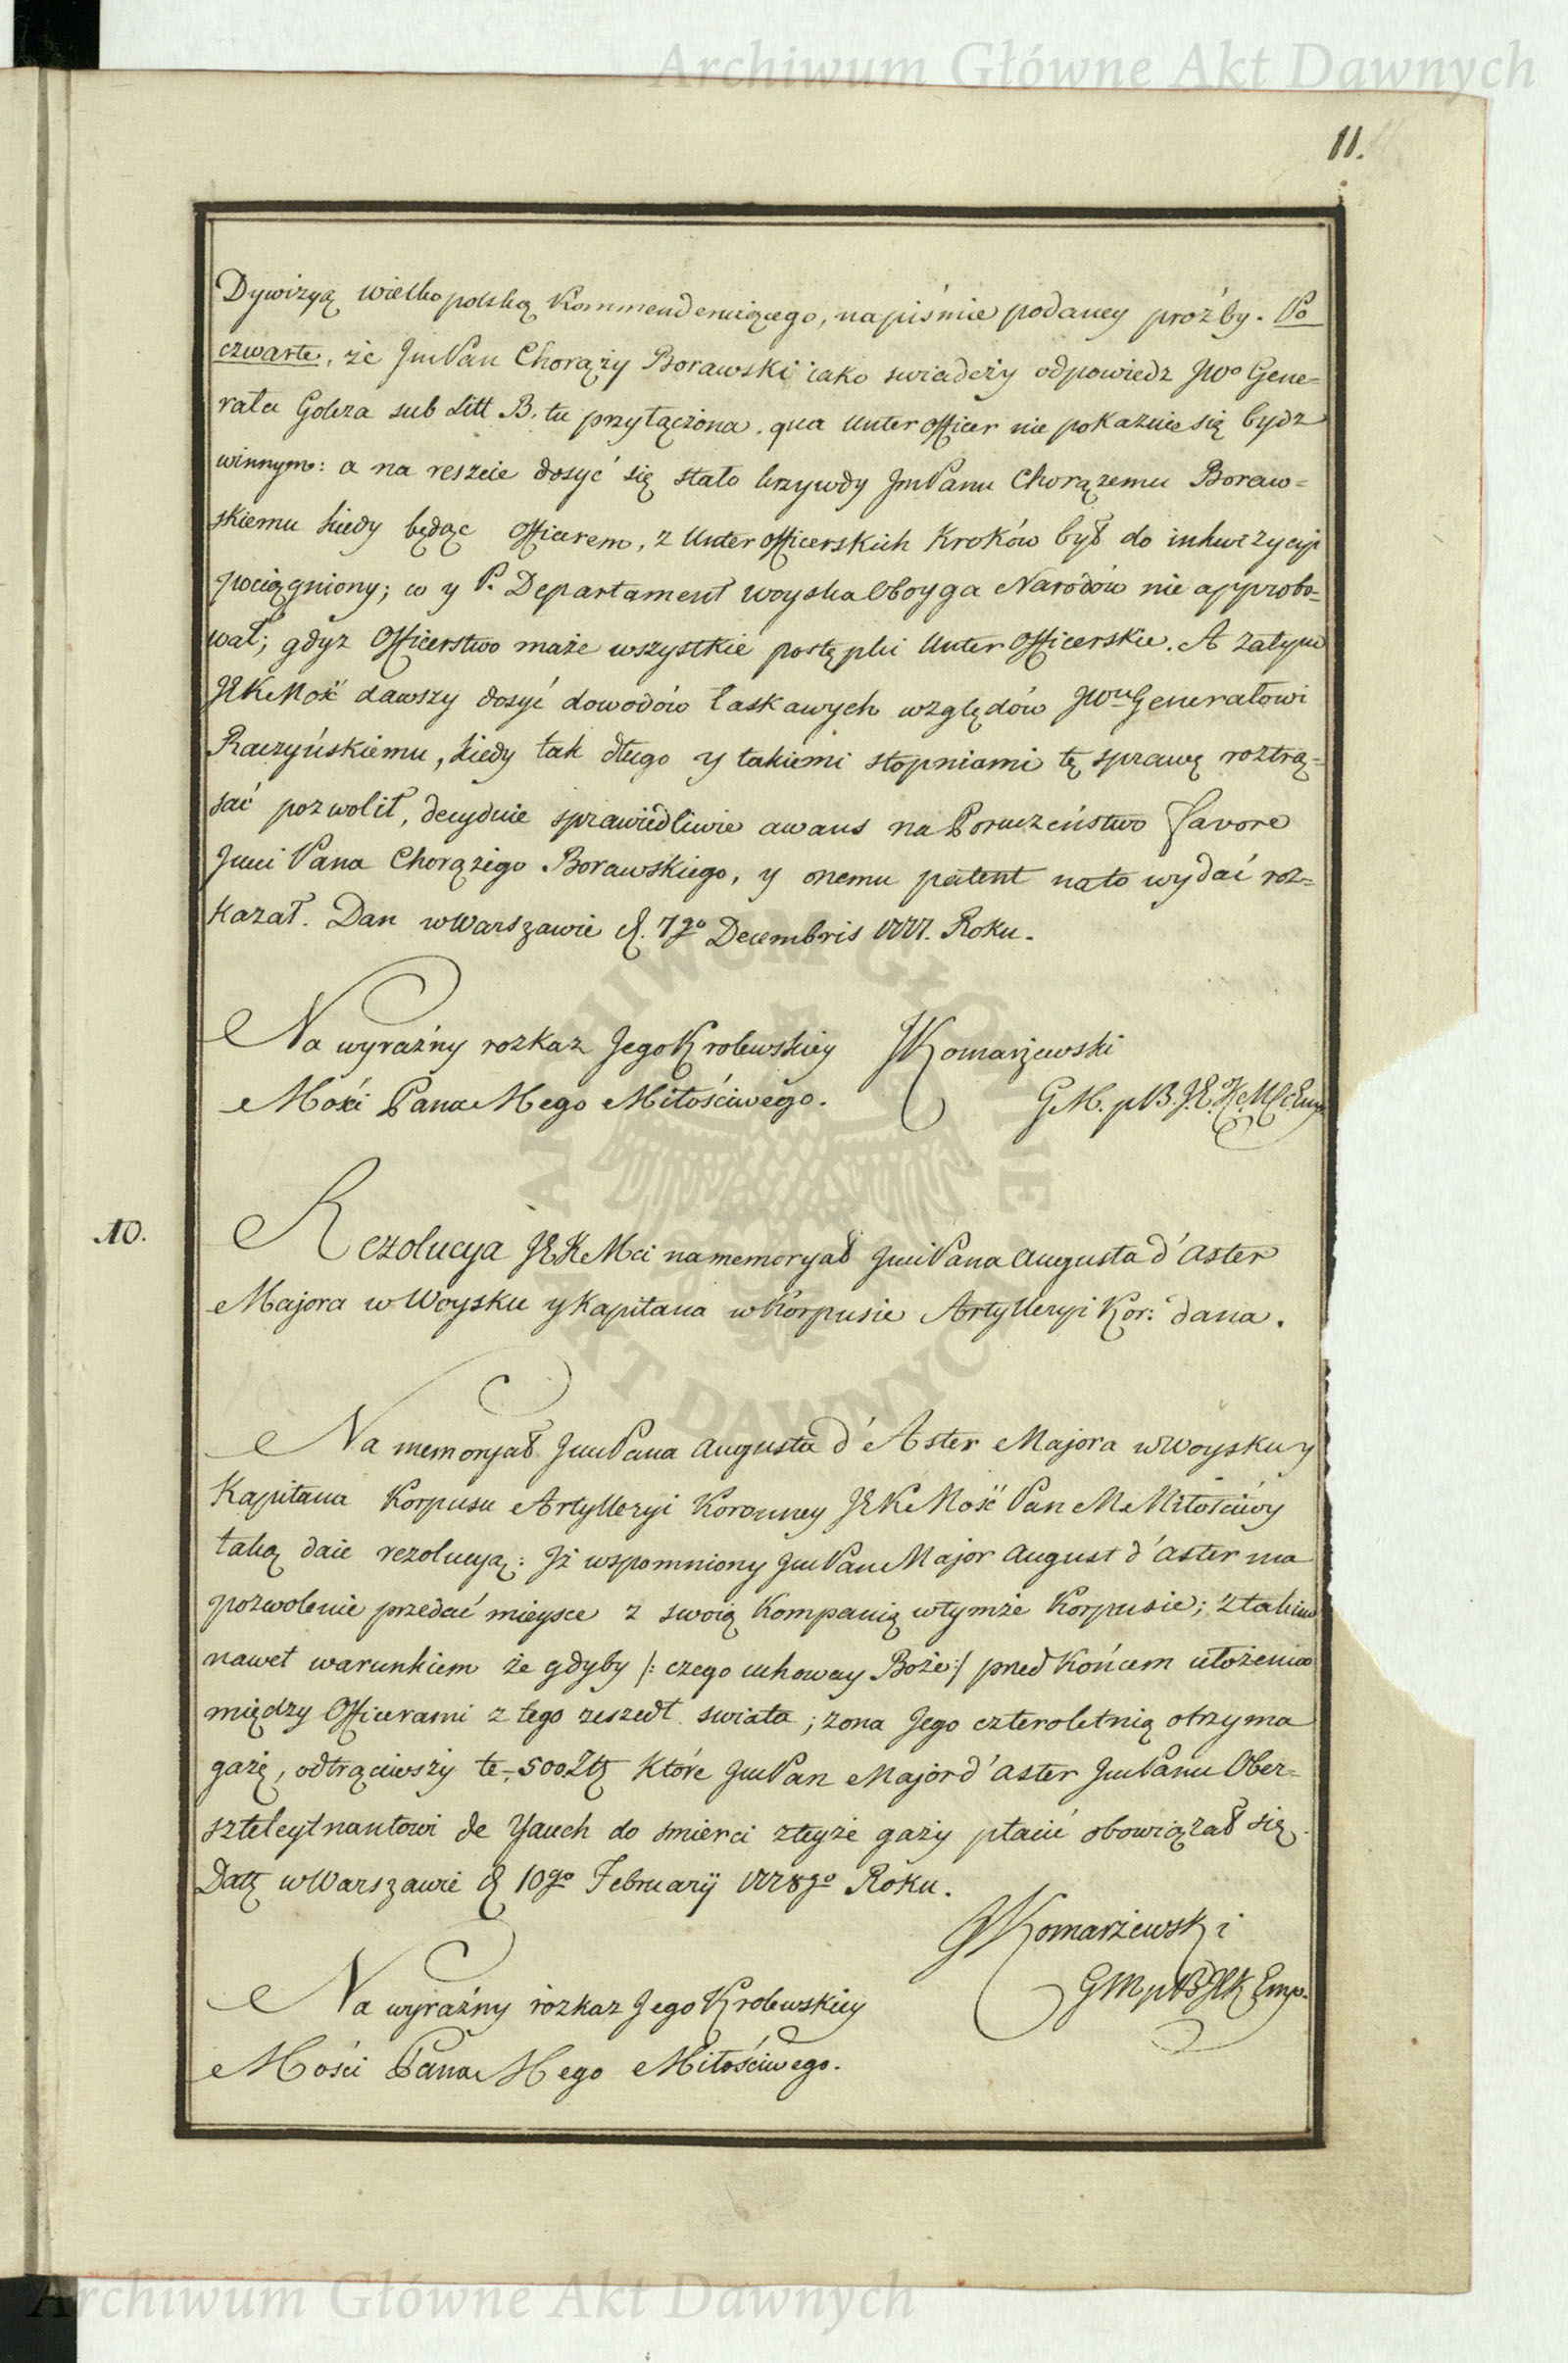 Archiwum Główne Akt Dawnych
11.
Dywizyą wielko polską Kommenderuiącego, na piśmie podaney proźby. Po
czwarte, że JmPan Chorąży Borawski iako swiadczy odpowiedz JWo Gene=
rała Golcza sub Litt B. tu przyłączona, qua Unter Officer nie pokazuie się bydz
winnym: a na reszcie dosyć się stało krzywdy JmPanu Chorązemu Boraw=
skiemu kiedy będąc Officerem, z Unter Officerskich Kroków był do inkwizycyi
pociągniony; co y P. Departament woyska Oboyga Narodów nie approbo=
wał; gdyz Officerstwo maże wszystkie postępki Unter Officerskie. A Zatym
JEKMość dawszy dosyć dowodów łaskawych względów JWmu Generałowi
Raczyńskiemu, kiedy tak długo y takiemi stopniami tę sprawę roztrzą=
sać pozwolił, decyduie sprawiedliwie awans na Poruczeństwo favore
Jmci Pana Chorążego Borawskiego, y onemu patent na to wydać roz=
kazał. Dan w Warszawie d. 7go Decembris 1777. Roku.
Na wyraźny rozkaz Jego Krolewskiey JKomarzewski
Mości Pana Mego Miłościwego. G.M. p B. J.K.Mci Emp
10. Rezolucya JEKMci na memoryał JmciPana Augusta d'Aster
Majora w Woysku y Kapitana w Korpusie Artylleryi Kor: dana.
Na memoryał JmciPana Augusta d'Aster Majora w Woysku y
Kapitana Korpusu Artylleryi Koronney JEKMość Pan M Miłościwy
taką daie rezolucyą: Iż wspomniony JmciPan Major August d'Aster ma
pozwolenie przedać mieysce z swoią Kompanią w tymże Korpusie; z takim
nawet warunkiem że gdyby /: czego uchoway Boże :/ przed Końcem ułożenia
między Officerami z tego zeszedł swiata; zona Jego czteroletnią otrzyma
gażę, odtrąciwszy te 500 Zł które JmciPan Major d'Aster JmciPanu Ober=
szteleytnantowi de Yauch do smierci z teyże gaży płacić obowiązał się.
Datt w Warszawie d 10go Februarÿ 1778go Roku.
JKomarzewski
Na wyraźny rozkaz Jego Krolewskiey GM p B JK Emp.
Mości Pana Mego Miłościwego.
Archiwum Główne Akt Dawnych